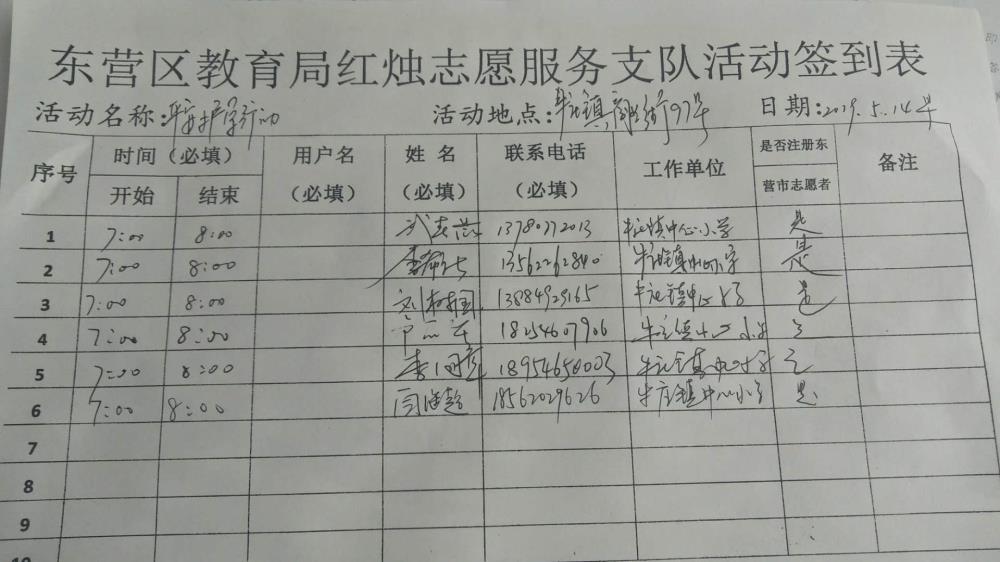 东营区教育局红烛志愿服务支队活动签到表
活动名称:平安护学行动 活动地点:牛庄镇 97号 日期:2019.5.14号
序号 时间（必填） 用户名（必填） 姓名（必填） 联系电话（必填） 工作单位 是否注册东营市志愿者 备注
开始 结束
1 7:00 8:00 13780772013 牛庄镇中心小学 是
2 7:00 8:00 13562262840 牛庄镇中心小学 是
3 7:00 8:00 刘树国 13884929165 牛庄镇中心小学 是
4 7:00 8:00 18254607906 牛庄镇中心小学 是
5 7:00 8:00 18954656003 牛庄镇中心小学 是
6 7:00 8:00 18562029626 牛庄镇中心小学 是
7
8
9
10